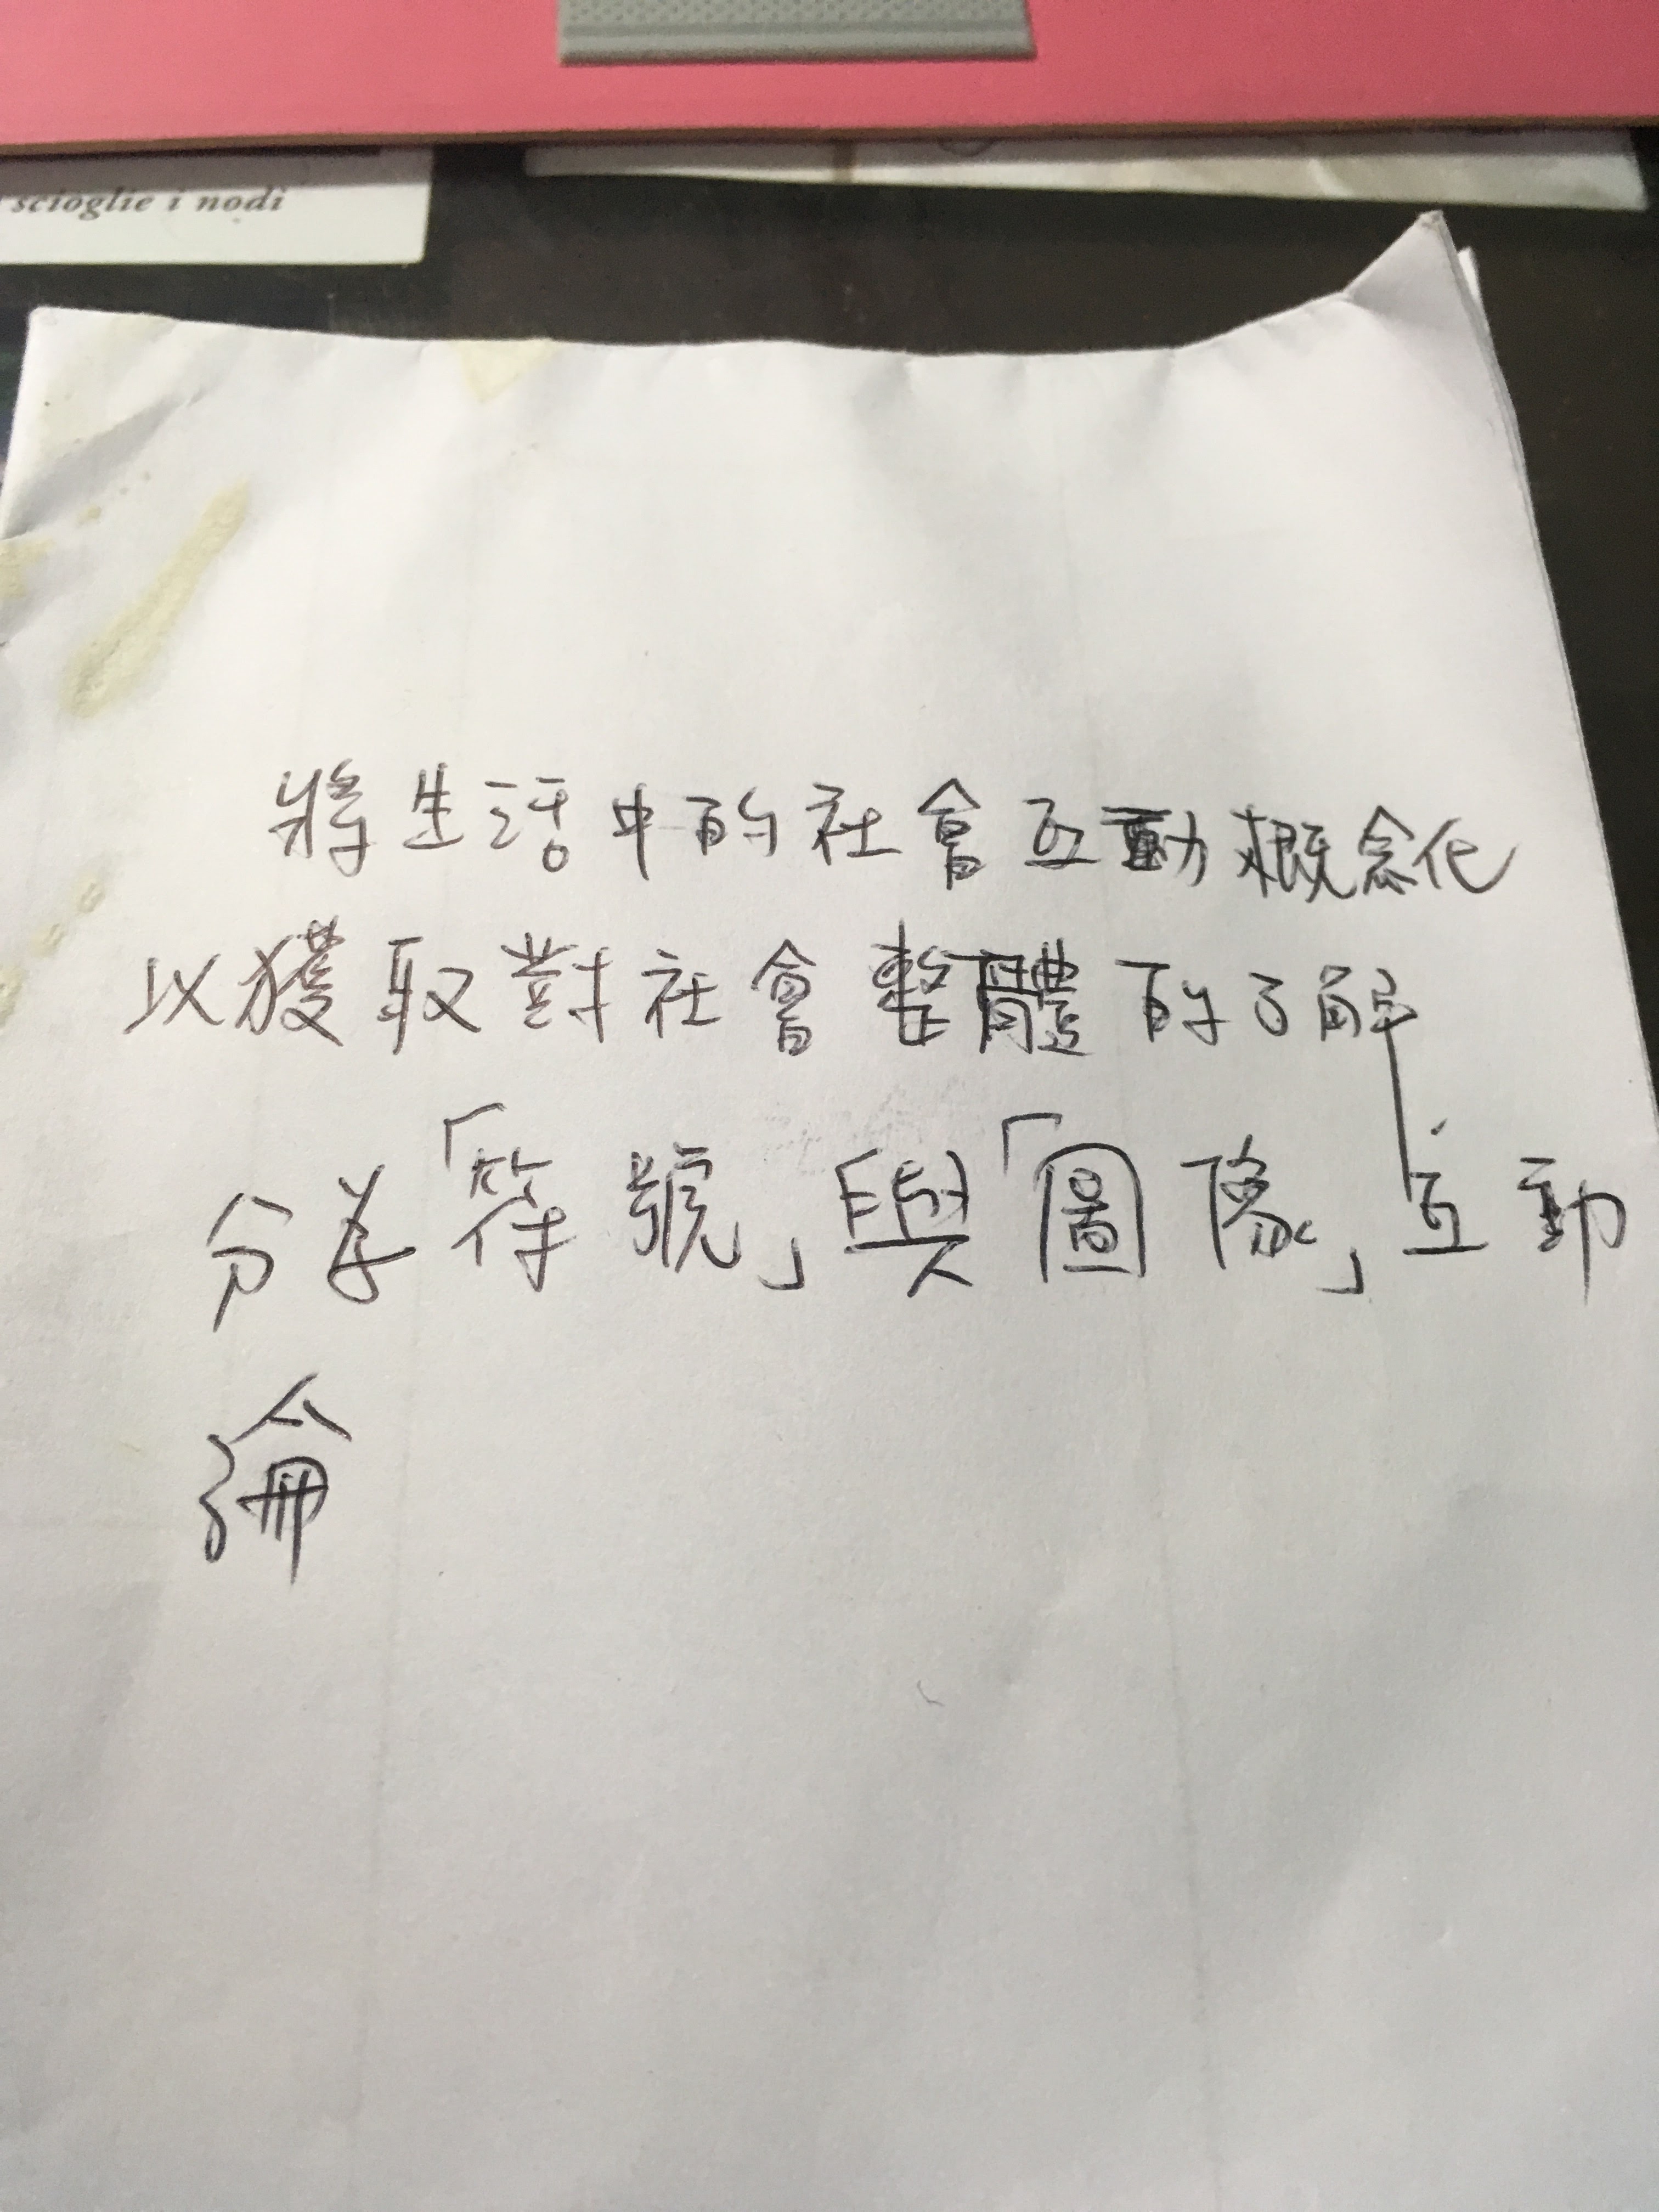 scioglie i nodi
將生活中的社會互動概念化
以獲取對社會整體的了解
分為「符號」與「圖像」互動
論